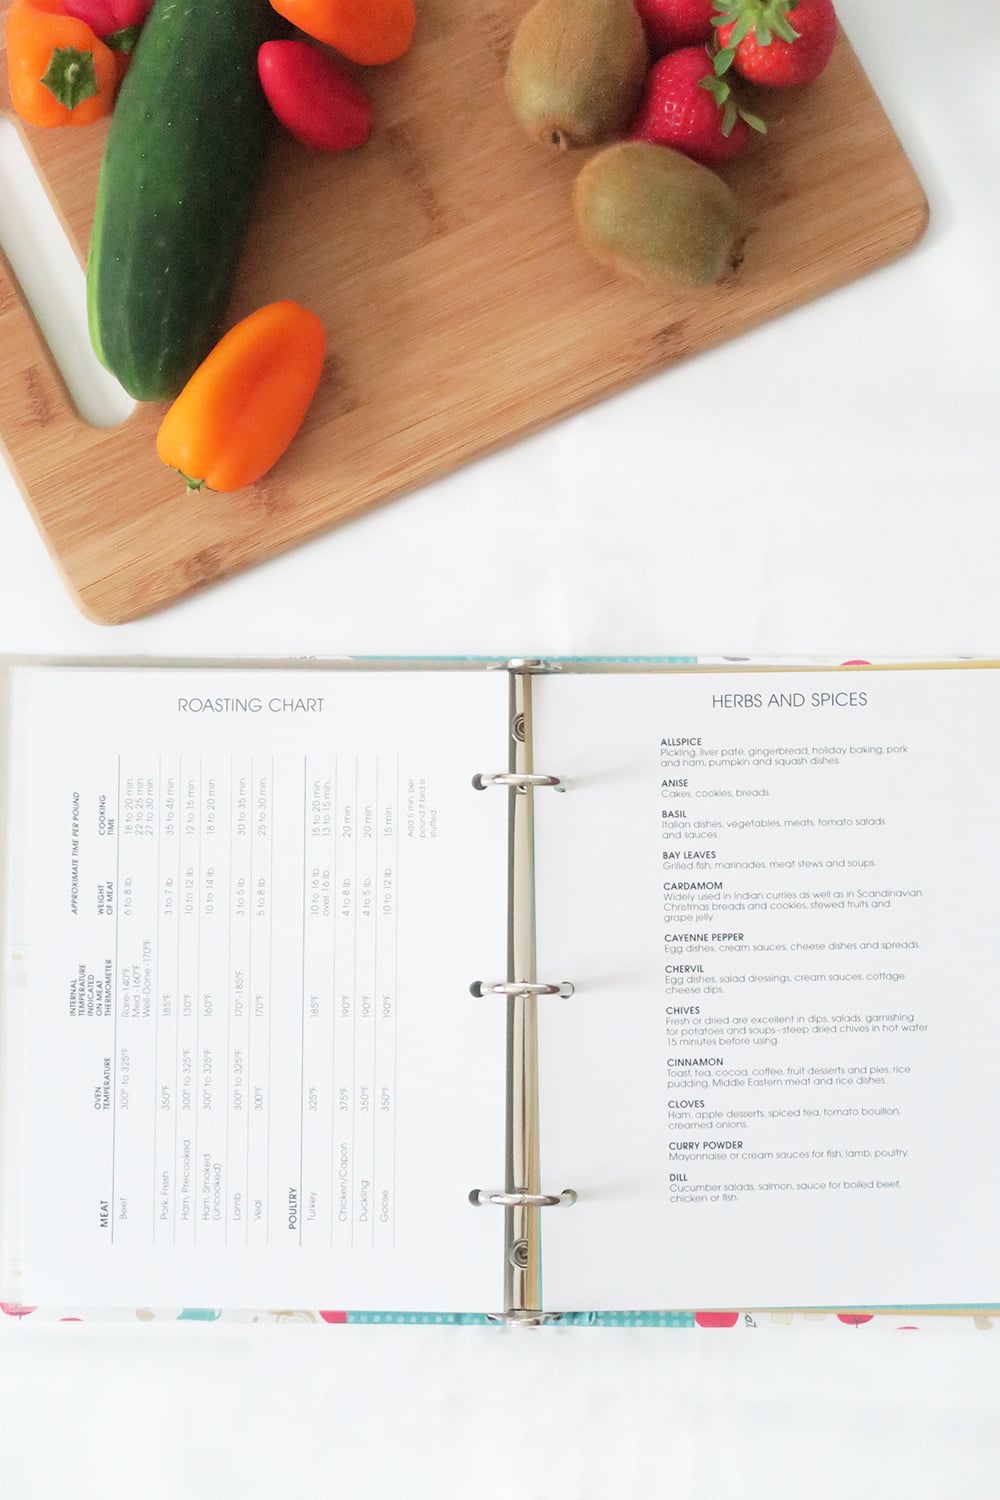 ROASTING CHART
APPROXIMATE TIME PER POUND
MEAT
OVEN
TEMPERATURE
INTERNAL
TEMPERATURE
INDICATED
ON MEAT
THERMOMETER
WEIGHT
OF MEAT
COOKING
TIME
Beef 300° to 325°F. Rare-140°F. 6 to 8 lb. 18 to 20 min.
Med.-160°F. 22 to 25 min.
Well-Done-170°F. 27 to 30 min.
Pork, Fresh 350°F. 185°F. 3 to 7 lb. 35 to 45 min.
Ham, Precooked 300° to 325°F. 130°F. 10 to 12 lb. 12 to 15 min.
Ham, Smoked 300° to 325°F. 160°F. 10 to 14 lb. 18 to 20 min.
(uncooked)
Lamb 300° to 325°F. 170°-185°F. 3 to 5 lb. 30 to 35 min.
Veal 300°F. 170°F. 5 to 8 lb. 25 to 30 min.
POULTRY
Turkey 325°F. 185°F. 10 to 16 lb. 15 to 20 min.
over 16 lb. 13 to 15 min.
Chicken/Capon 375°F. 190°F. 4 to 8 lb. 20 min.
Duckling 350°F. 190°F. 4 to 5 lb. 20 min.
Goose 350°F. 190°F. 10 to 12 lb. 15 min.
Add 5 min. per
pound if bird is
stuffed
HERBS AND SPICES
ALLSPICE
Pickling, liver pate, gingerbread, holiday baking, pork
and ham, pumpkin and squash dishes.
ANISE
Cakes, cookies, breads.
BASIL
Italian dishes, vegetables, meats, tomato salads
and sauces.
BAY LEAVES
Grilled fish, marinades, meat stews and soups.
CARDAMOM
Widely used in Indian curries as well as in Scandinavian
Christmas breads and cookies, stewed fruits and
grape jelly.
CAYENNE PEPPER
Egg dishes, cream sauces, cheese dishes and spreads.
CHERVIL
Egg dishes, salad dressings, cream sauces, cottage
cheese dips.
CHIVES
Fresh or dried are excellent in dips, salads, garnishing
for potatoes and soups-steep dried chives in hot water
15 minutes before using.
CINNAMON
Toast, tea, cocoa, coffee, fruit desserts and pies, rice
pudding, Middle Eastern meat and rice dishes.
CLOVES
Ham, apple desserts, spiced tea, tomato bouillon,
creamed onions.
CURRY POWDER
Mayonnaise or cream sauces for fish, lamb, poultry.
DILL
Cucumber salads, salmon, sauce for boiled beef,
chicken or fish.